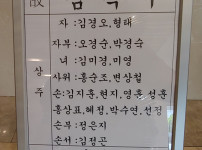 故
자 : 김경오,형태
자부 : 오경순,박경숙
녀 : 김미경,미영
상주
사위 : 홍순조,변상철
손 : 김지훈,현지,영훈,성훈
홍상표,혜정,박수연,선정
손부 : 정은지
손서 : 김정곤